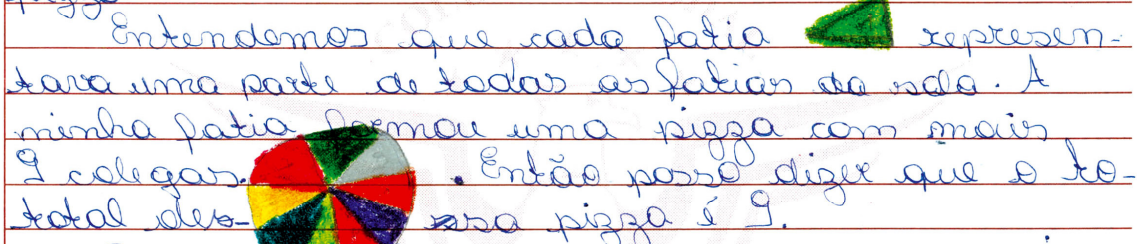 Entendemos que cada fatia represen-
tava uma parte de todas as fatias da sala. A
minha fatia formou uma pizza com mais
9 colegas. . Então posso dizer que o to-
total des- ssa pizza é 9.